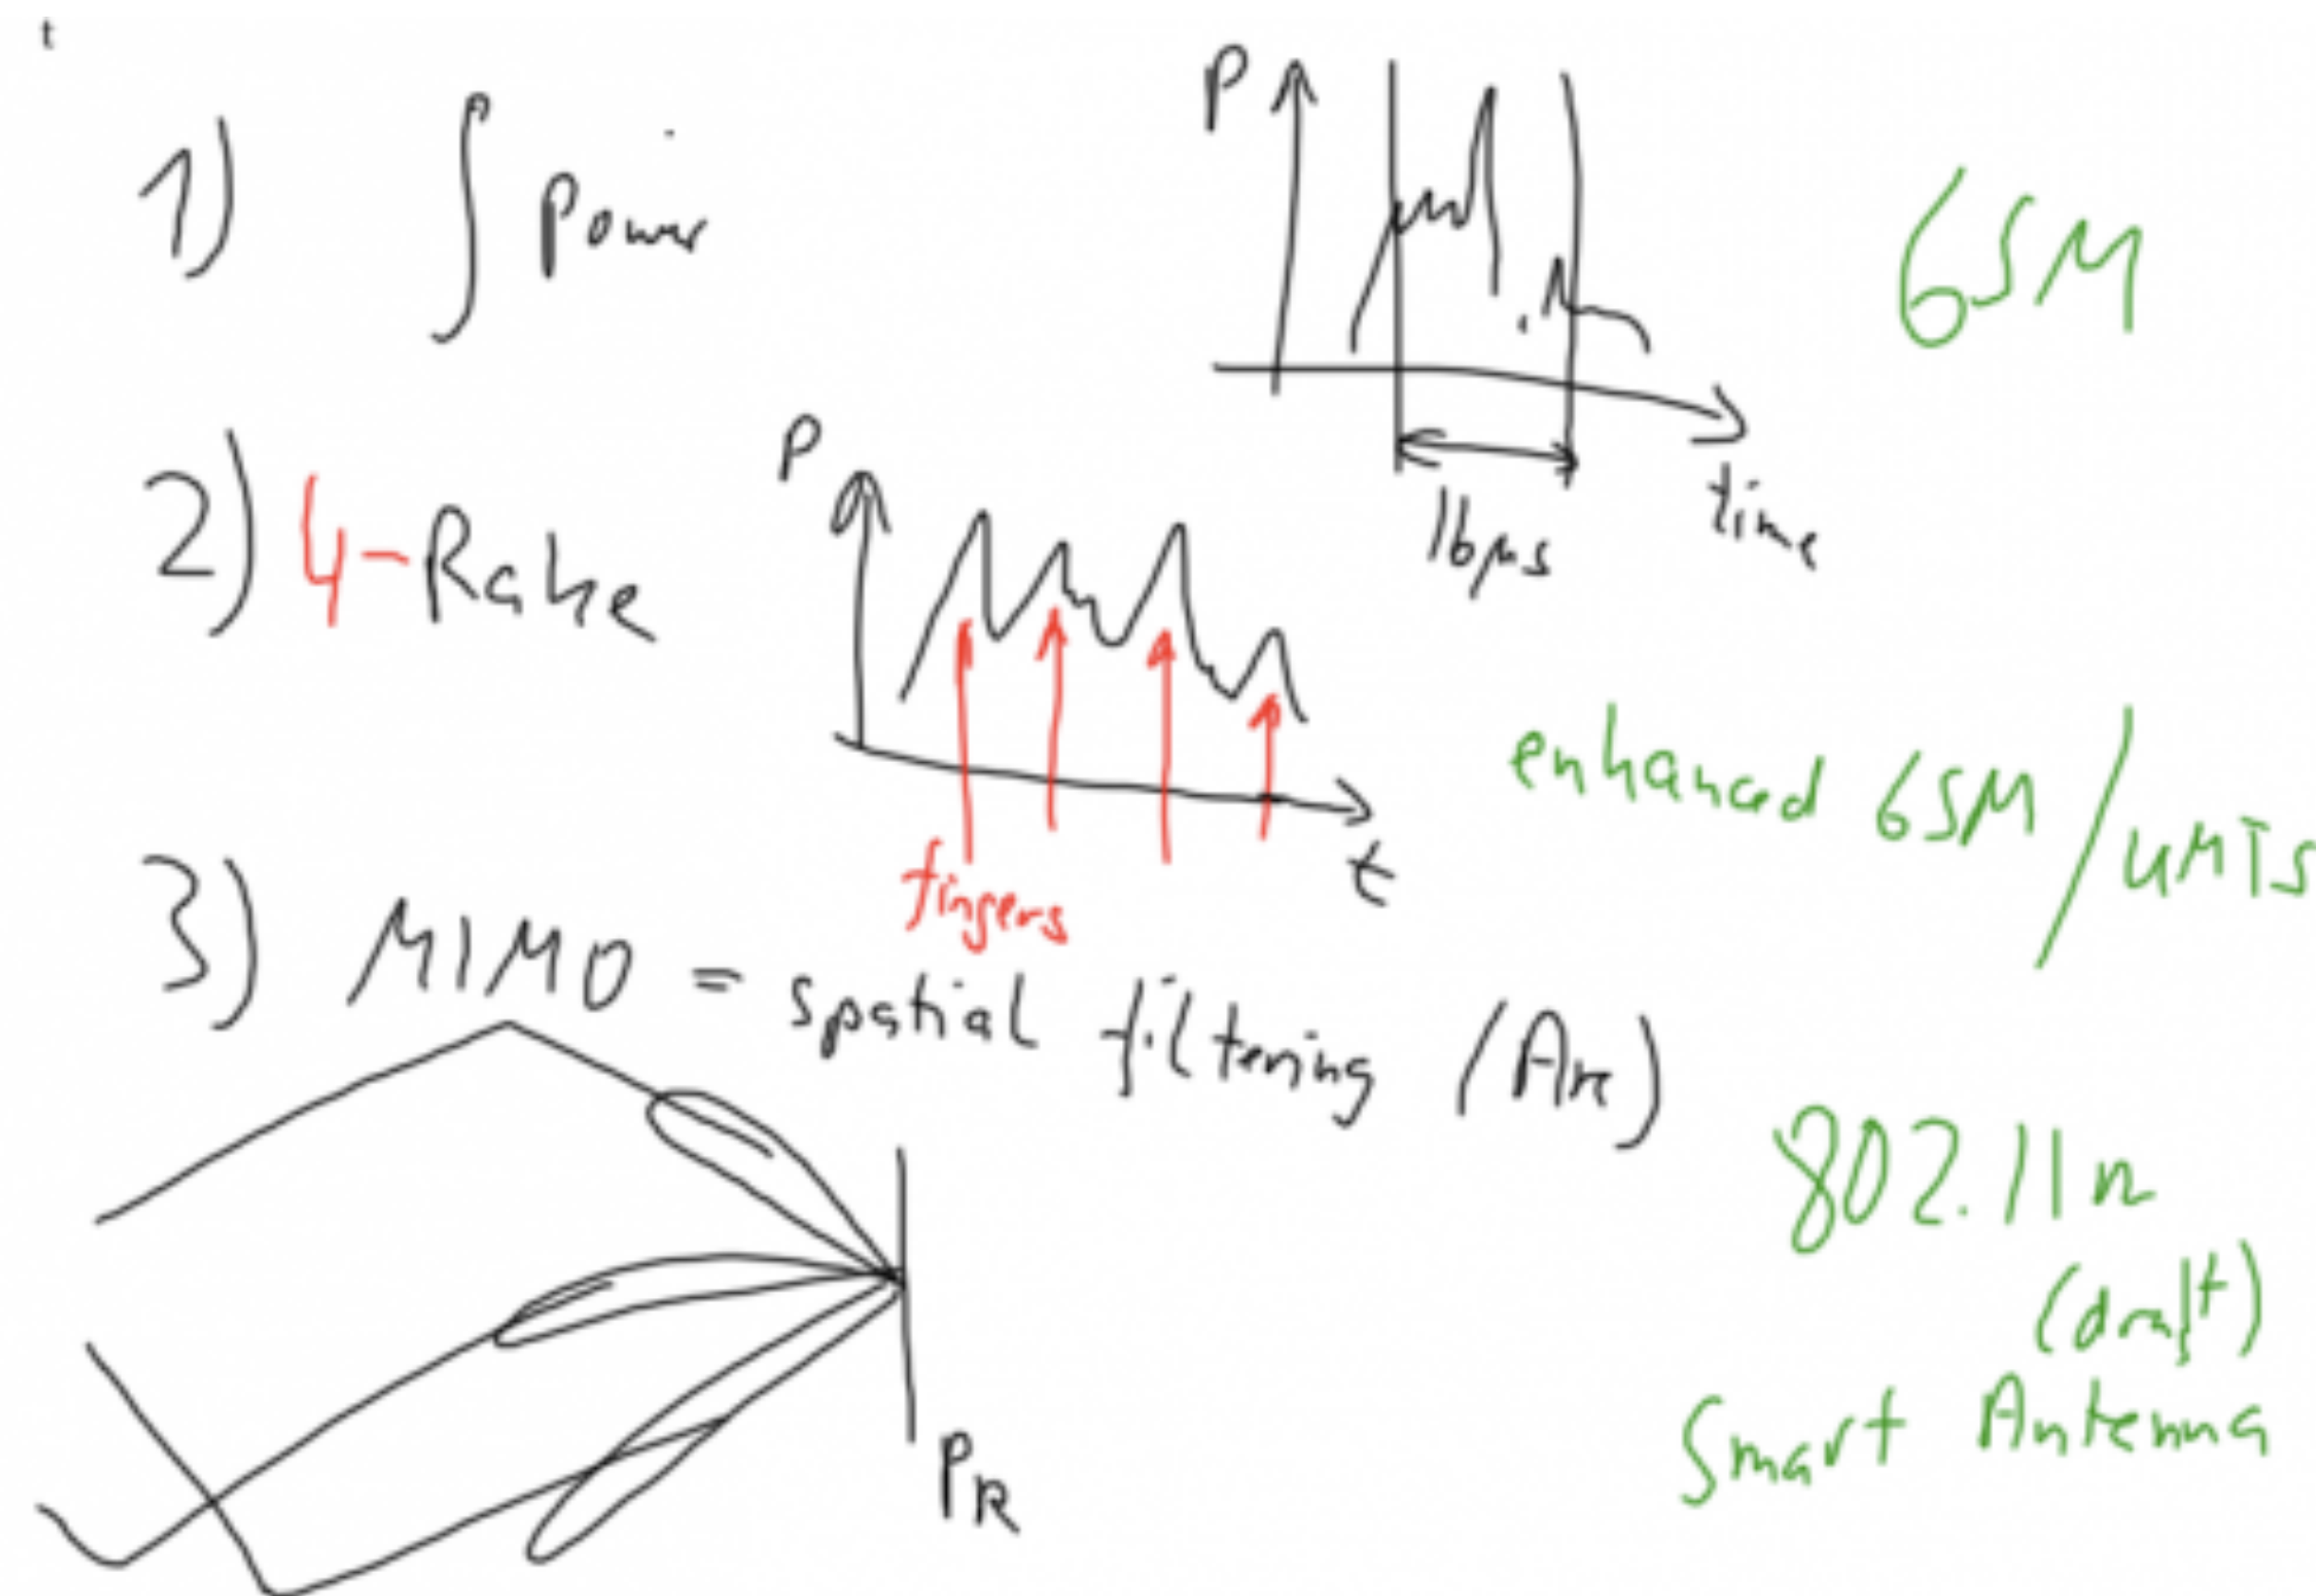 t
1) ∫ Power
P
GSM
16µs
time
2) 4-Rake
P
t
fingers
enhanced GSM / UMTS
3) MIMO = spatial filtering
802.11n
(draft)
Smart Antenna
PR